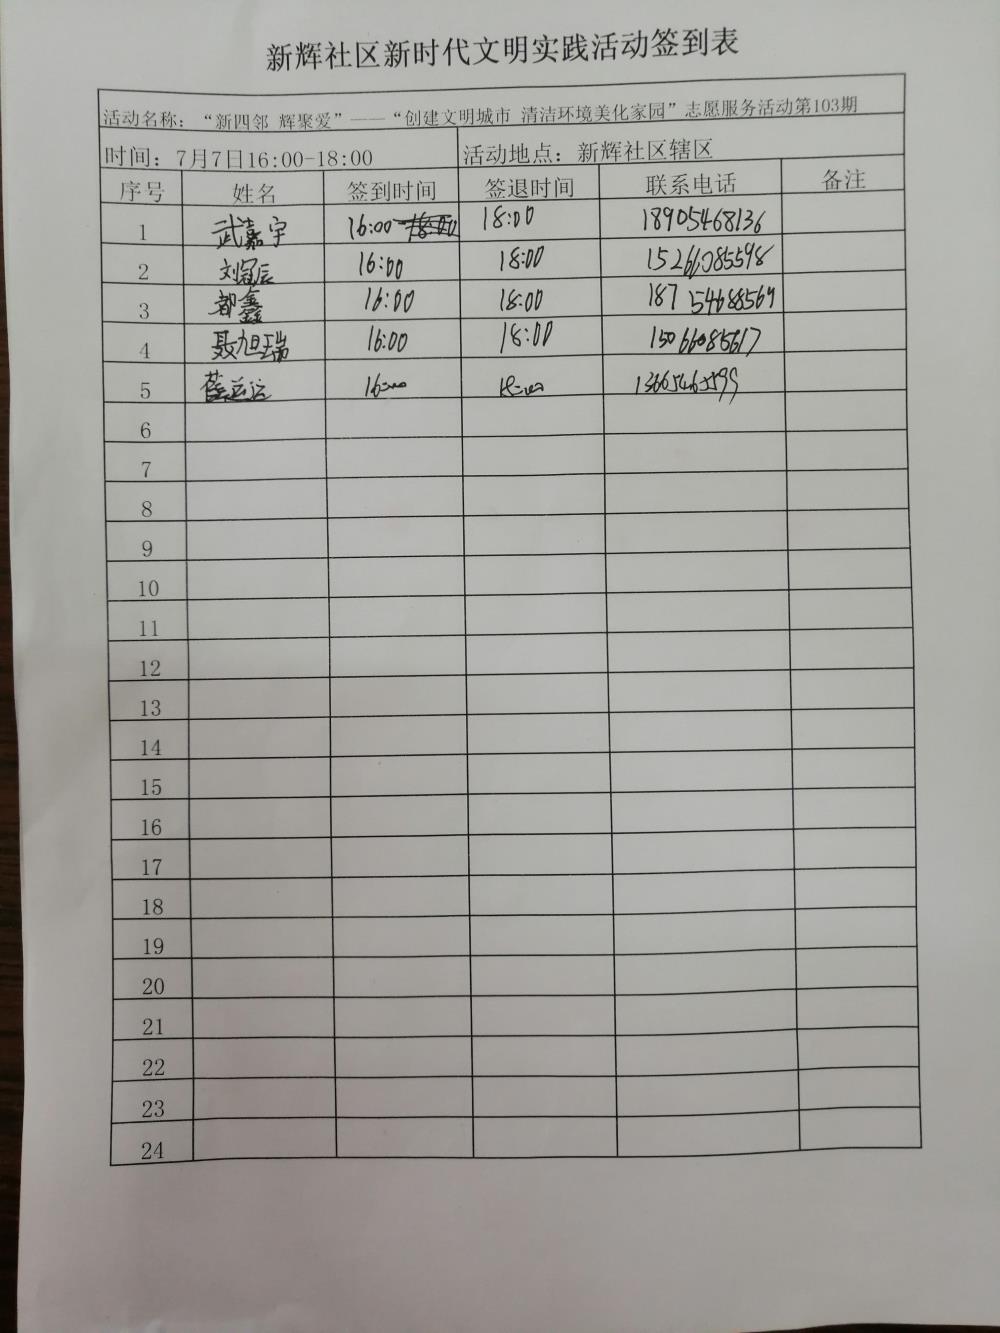 新辉社区新时代文明实践活动签到表
活动名称：“新四邻 辉聚爱”——“创建文明城市 清洁环境美化家园”志愿服务活动第103期
时间：7月7日16:00-18:00 活动地点：新辉社区辖区
序号 姓名 签到时间 签退时间 联系电话 备注
1 武嘉宇 16:00 18:00 18905468136
2 刘冠辰 16:00 18:00 15266085598
3 都鑫 16:00 18:00 18754688569
4 聂旭瑞 16:00 18:00 15066085617
5 16:00 18:00
6
7
8
9
10
11
12
13
14
15
16
17
18
19
20
21
22
23
24